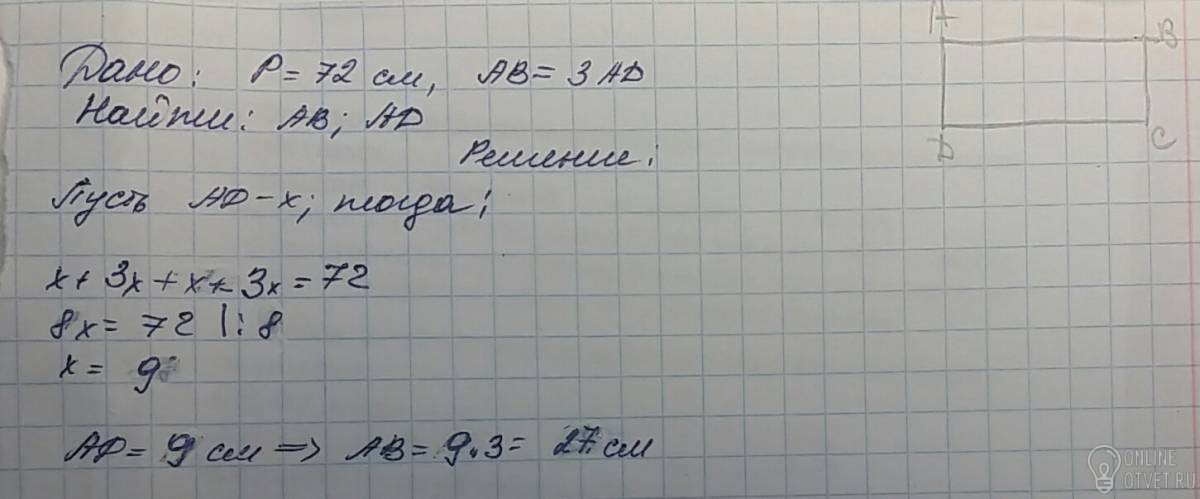 A
B
Дано: P = 72 см, AB = 3 AD
Найти: AB; AD
D
C
Решение:
Пусть AD - x; тогда:
x + 3x + x + 3x = 72
8x = 72 |: 8
x = 9
AD = 9 см => AB = 9·3 = 27 см
ONLINE
OTVET.RU